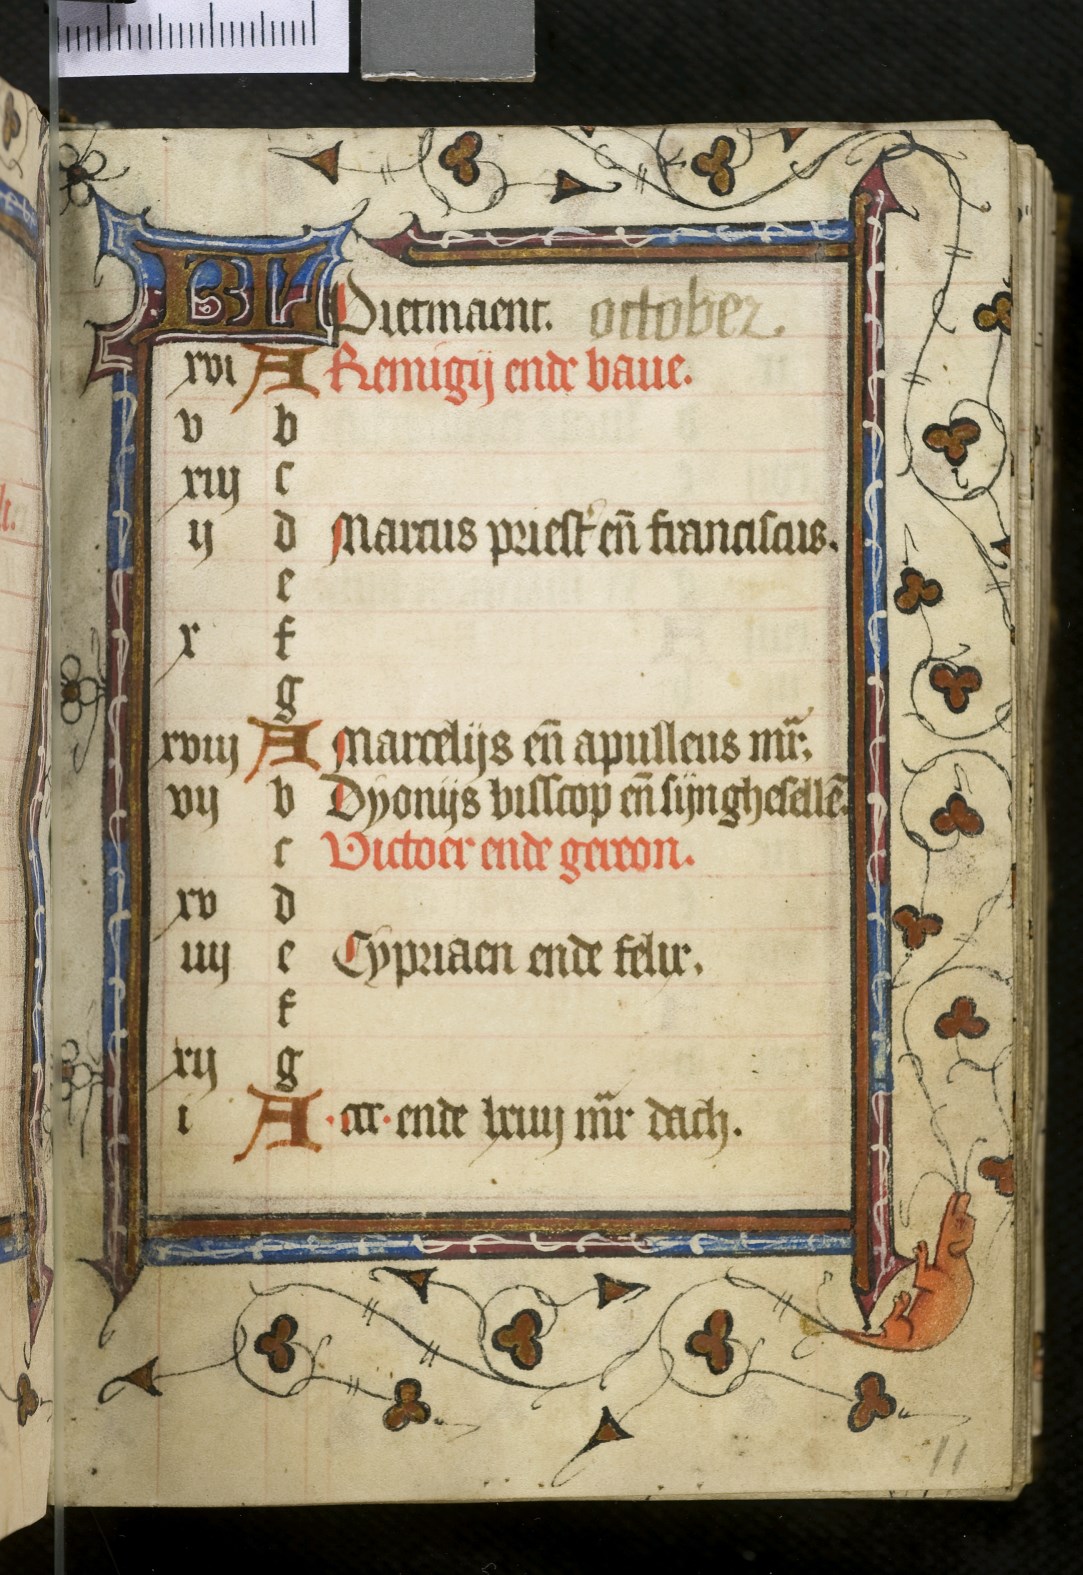 KL Pietmaent. october.
xvi A Remigij ende baue.
v b
xiij c
ij d Marcus priest en̄ franciscus.
e
x f
g
xviij A Marcelijs en̄ apulleus mr̄.
vij b Dyonijs bisscop en̄ sijn ghesellē.
c Victoer ende gereon.
xv d
iiij e Cypriaen ende felix.
f
xij g
i A .ccc. ende lxiiij mr̄ dach.
11